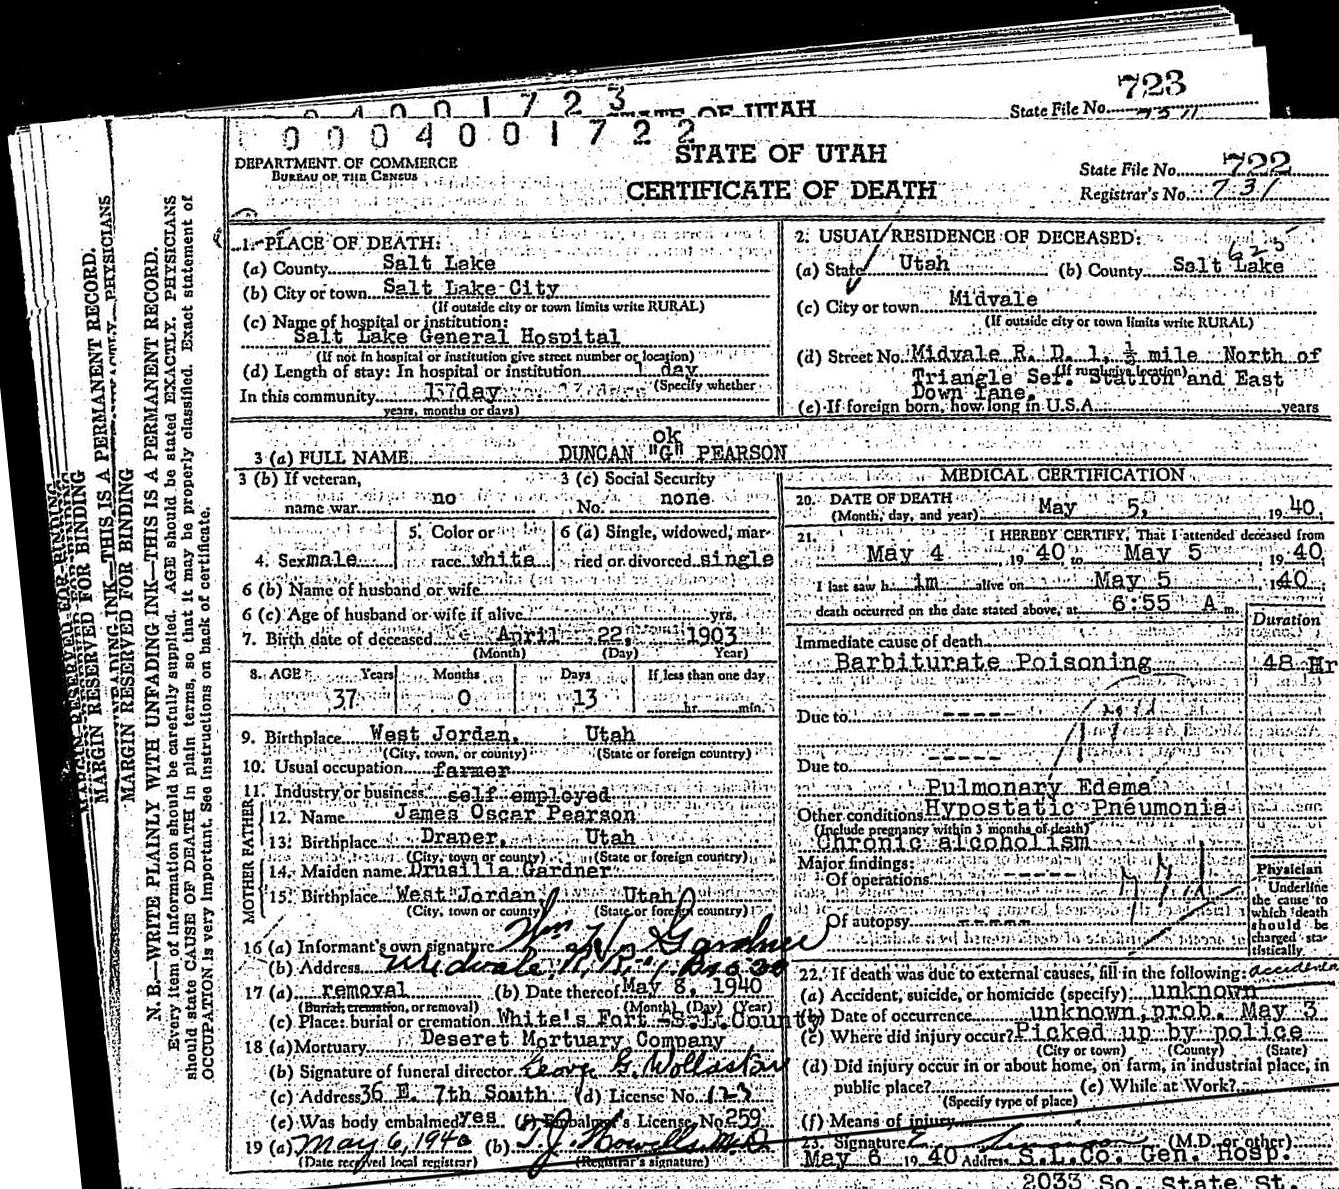 0 4 0 0 1 7 2 3
STATE OF UTAH
State File No. 723
0 0 0 4 0 0 1 7 2 2
DEPARTMENT OF COMMERCE
BUREAU OF THE CENSUS
STATE OF UTAH
CERTIFICATE OF DEATH
State File No. 722
Registrar's No. 731
MARGIN RESERVED FOR BINDING
N. B.—WRITE PLAINLY WITH UNFADING INK—THIS IS A PERMANENT RECORD.
Every item of information should be carefully supplied. AGE should be stated EXACTLY. PHYSICIANS
should state CAUSE OF DEATH in plain terms, so that it may be properly classified. Exact statement of
OCCUPATION is very important. See instructions on back of certificate.
1. PLACE OF DEATH:
(a) County Salt Lake
(b) City or town Salt Lake City
(If outside city or town limits write RURAL)
(c) Name of hospital or institution:
Salt Lake General Hospital
(If not in hospital or institution give street number or location)
(d) Length of stay: In hospital or institution 1 day
(Specify whether
In this community
years, months or days)
2. USUAL RESIDENCE OF DECEASED:
625
(a) State Utah (b) County Salt Lake
(c) City or town Midvale
(If outside city or town limits write RURAL)
(d) Street No. Midvale R. D. 1, ½ mile North of
(If rural give location)
Triangle Ser. Station and East
Down lane.
(e) If foreign born, how long in U.S.A. years
ok
3 (a) FULL NAME DUNCAN "G" PEARSON
3 (b) If veteran,
name war no
3 (c) Social Security
No. none
4. Sex male
5. Color or
race white
6 (a) Single, widowed, mar-
ried or divorced single
6 (b) Name of husband or wife
6 (c) Age of husband or wife if alive yrs.
7. Birth date of deceased April 22, 1903
(Month) (Day) Year)
8. AGE Years Months Days If less than one day
37 0 13 hr. min.
9. Birthplace West Jordan, Utah
(City, town, or county) (State or foreign country)
10. Usual occupation farmer
11. Industry or business self employed
FATHER
12. Name James Oscar Pearson
13. Birthplace Draper, Utah
(City, town or county) (State or foreign country)
MOTHER
14. Maiden name Drusilla Gardner
15. Birthplace West Jordan, Utah
(City, town or county) (State or foreign country)
16 (a) Informant's own signature Wm H. Gardner
(b) Address Midvale, R.R. #1 Box 30
17 (a) removal (b) Date thereof May 8, 1940
(Burial, cremation, or removal) (Month) (Day) (Year)
(c) Place: burial or cremation White's Fort -S.L.County
18 (a) Mortuary Deseret Mortuary Company
(b) Signature of funeral director George G. Wollaston
(c) Address 36 E. 7th South (d) License No. 123
(e) Was body embalmed yes (f) Embalmer's License No. 259
19 (a) May 6, 1940 (b) T. J. Howells M.D.
(Date received local registrar) (Registrar's signature)
MEDICAL CERTIFICATION
20. DATE OF DEATH
(Month, day, and year) May 5, 1940
21. I HEREBY CERTIFY, That I attended deceased from
May 4, 1940 to May 5, 1940
I last saw him alive on May 5 1940
death occurred on the date stated above, at 6:55 A m.
Duration
Immediate cause of death
Barbiturate Poisoning 48 Hr
Due to -----
Due to -----
Pulmonary Edema
Other conditions Hypostatic Pneumonia
(Include pregnancy within 3 months of death)
Chronic alcoholism
Major findings:
Of operations -----
Of autopsy -----
Physician
Underline
the cause to
which death
should be
charged sta-
tistically.
22. If death was due to external causes, fill in the following:
(a) Accident, suicide, or homicide (specify) unknown
(b) Date of occurrence unknown, prob. May 3
(c) Where did injury occur? Picked up by police
(City or town) (County) (State)
(d) Did injury occur in or about home, on farm, in industrial place, in
public place? (e) While at Work?
(Specify type of place)
(f) Means of injury
23. Signature (M.D. or other)
May 6 1940 Address S.L.Co. Gen. Hosp.
2033 So. State St.